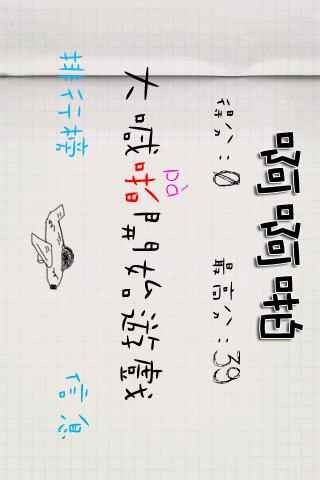 啊啊啪
得分:0 最高分:39
pa
大喊啪開始遊戲
排行榜 信息